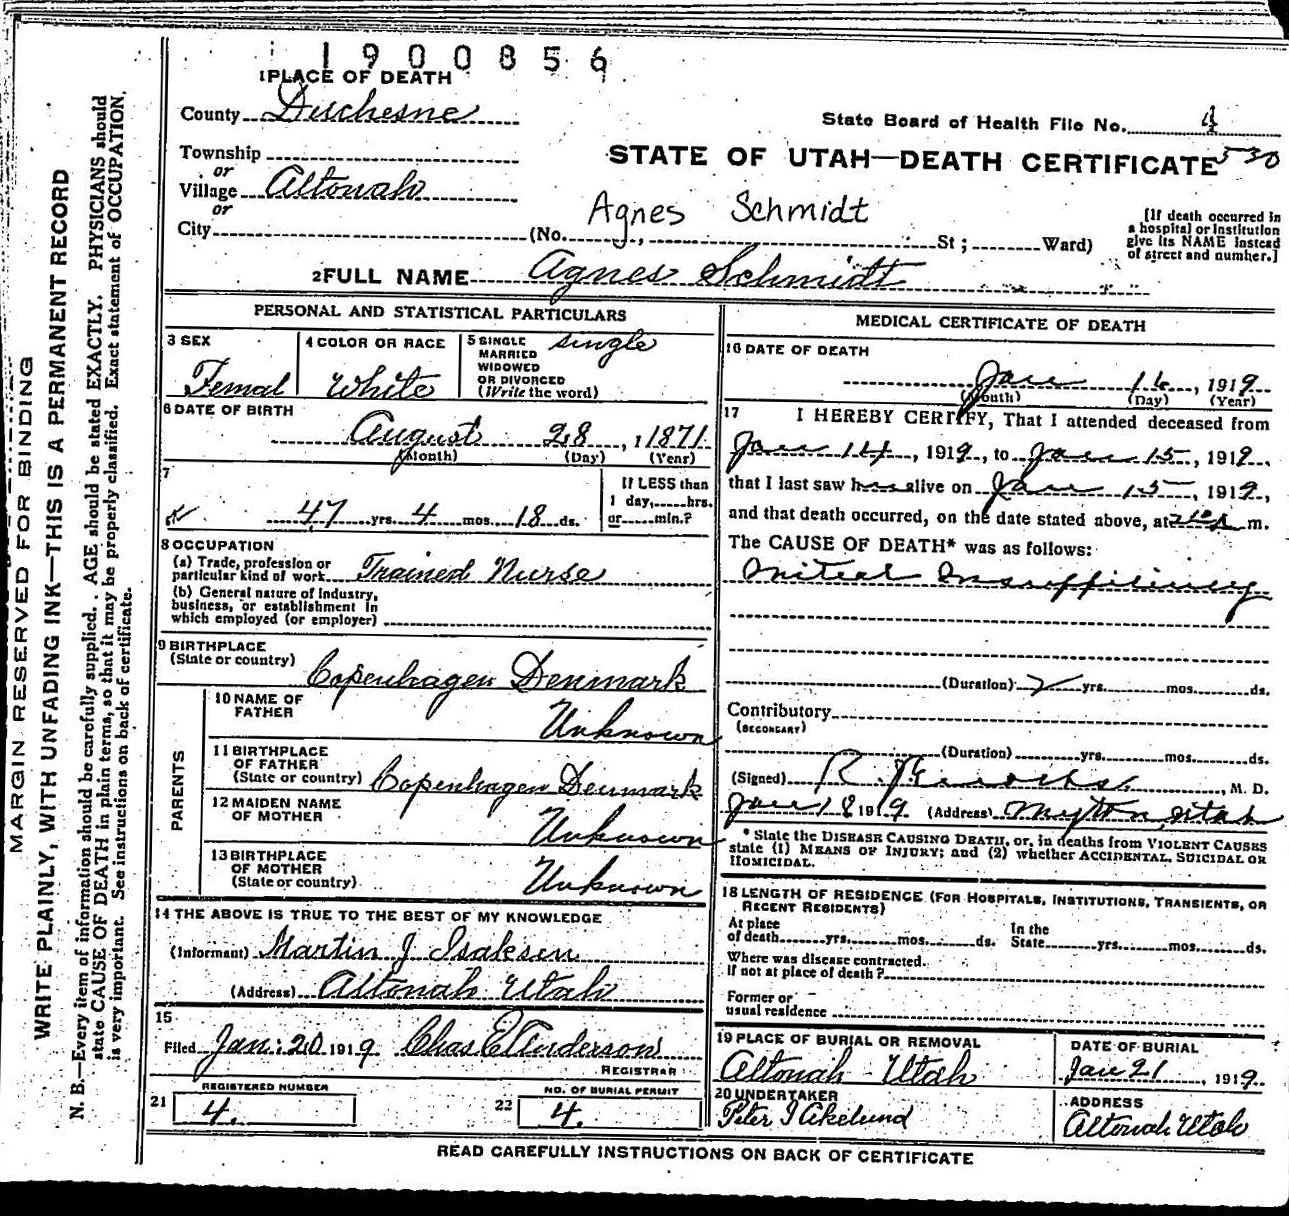 1900856
1 PLACE OF DEATH
County Duchesne
State Board of Health File No. 4
Township
or
Village Altonah
or
City (No. , St ; Ward)
STATE OF UTAH—DEATH CERTIFICATE 530
Agnes Schmidt
[If death occurred in
a hospital or institution
give its NAME instead
of street and number.]
2 FULL NAME Agnes Schmidt
PERSONAL AND STATISTICAL PARTICULARS
3 SEX
Femal
4 COLOR OR RACE
White
5 SINGLE
MARRIED
WIDOWED
OR DIVORCED
(Write the word)
single
6 DATE OF BIRTH
August 28, 1871
(Month) (Day) (Year)
7
47 yrs. 4 mos. 18 ds.
If LESS than
1 day, hrs.
or min.?
8 OCCUPATION
(a) Trade, profession or
particular kind of work Trained Nurse
(b) General nature of industry,
business, or establishment in
which employed (or employer)
9 BIRTHPLACE
(State or country) Copenhagen Denmark
PARENTS
10 NAME OF
FATHER Unknown
11 BIRTHPLACE
OF FATHER
(State or country) Copenhagen Denmark
12 MAIDEN NAME
OF MOTHER Unknown
13 BIRTHPLACE
OF MOTHER
(State or country) Unknown
14 THE ABOVE IS TRUE TO THE BEST OF MY KNOWLEDGE
(Informant) Martin J Isaksen
(Address) Altonah Utah
15
Filed Jan. 20 1919 Chas E Anderson
REGISTRAR
REGISTERED NUMBER
21 4.
NO. OF BURIAL PERMIT
22 4.
MEDICAL CERTIFICATE OF DEATH
16 DATE OF DEATH
Jan 16, 1919
(Month) (Day) (Year)
17 I HEREBY CERTIFY, That I attended deceased from
Jan 14, 1919, to Jan 15, 1919,
that I last saw her alive on Jan 15, 1919,
and that death occurred, on the date stated above, at m.
The CAUSE OF DEATH* was as follows:
Mitral Insufficiency
(Duration) yrs. mos. ds.
Contributory
(SECONDARY)
(Duration) yrs. mos. ds.
(Signed) R. , M. D.
Jan 18 1919 (Address) Myton, Utah
* State the DISEASE CAUSING DEATH, or, in deaths from VIOLENT CAUSES
state (1) MEANS OF INJURY; and (2) whether ACCIDENTAL, SUICIDAL OR
HOMICIDAL.
18 LENGTH OF RESIDENCE (FOR HOSPITALS, INSTITUTIONS, TRANSIENTS, OR
RECENT RESIDENTS)
At place
of death yrs. mos. ds.
In the
State yrs. mos. ds.
Where was disease contracted.
If not at place of death?
Former or
usual residence
19 PLACE OF BURIAL OR REMOVAL
Altonah Utah
DATE OF BURIAL
Jan 21, 1919
20 UNDERTAKER
Peter J Akelund
ADDRESS
Altonah Utah
READ CAREFULLY INSTRUCTIONS ON BACK OF CERTIFICATE
MARGIN RESERVED FOR BINDING
WRITE PLAINLY, WITH UNFADING INK—THIS IS A PERMANENT RECORD
N. B.—Every item of information should be carefully supplied. AGE should be stated EXACTLY. PHYSICIANS should
state CAUSE OF DEATH in plain terms, so that it may be properly classified. Exact statement of OCCUPATION.
is very important. See instructions on back of certificate.